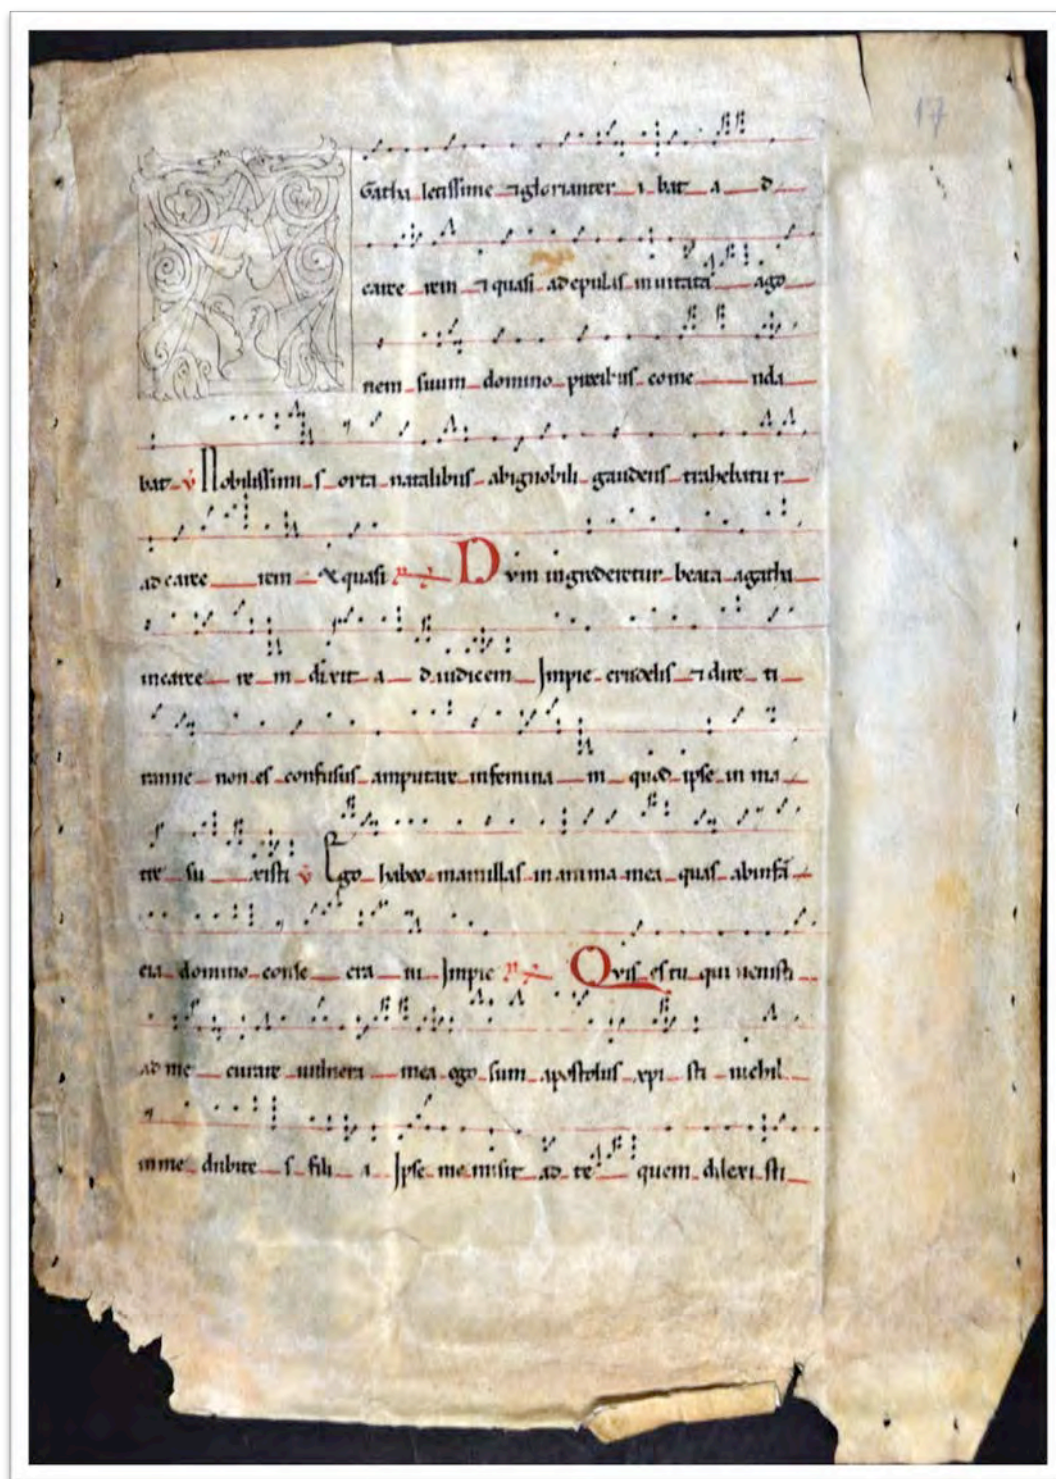 17
Gatha letissime ⁊ glorianter i bat a d
carce rem ⁊ quasi ad epulas inuitata ago
nem suum domino precibus come nda
bat v Nobilissimi s orta natalibus abignobili gaudens trahebatu r
ad carce rem Et quasi
Dvm ingrederetur beata agatha
incarce re m dixit a d iudicem Impie crudelis ⁊ dire ti
ranne non es confusus amputare infemina m quod ipse in ma
tre su xisti v Ego habeo mamillas in anima mea quas abinfā
cia domino conse cra ui Impie
Qvis es tu qui uenisti
ad me curare uulnera mea ego sum apostolus xpi sti nichil
inme dubite s fili a Ipse me misit ad te quem dilexi sti